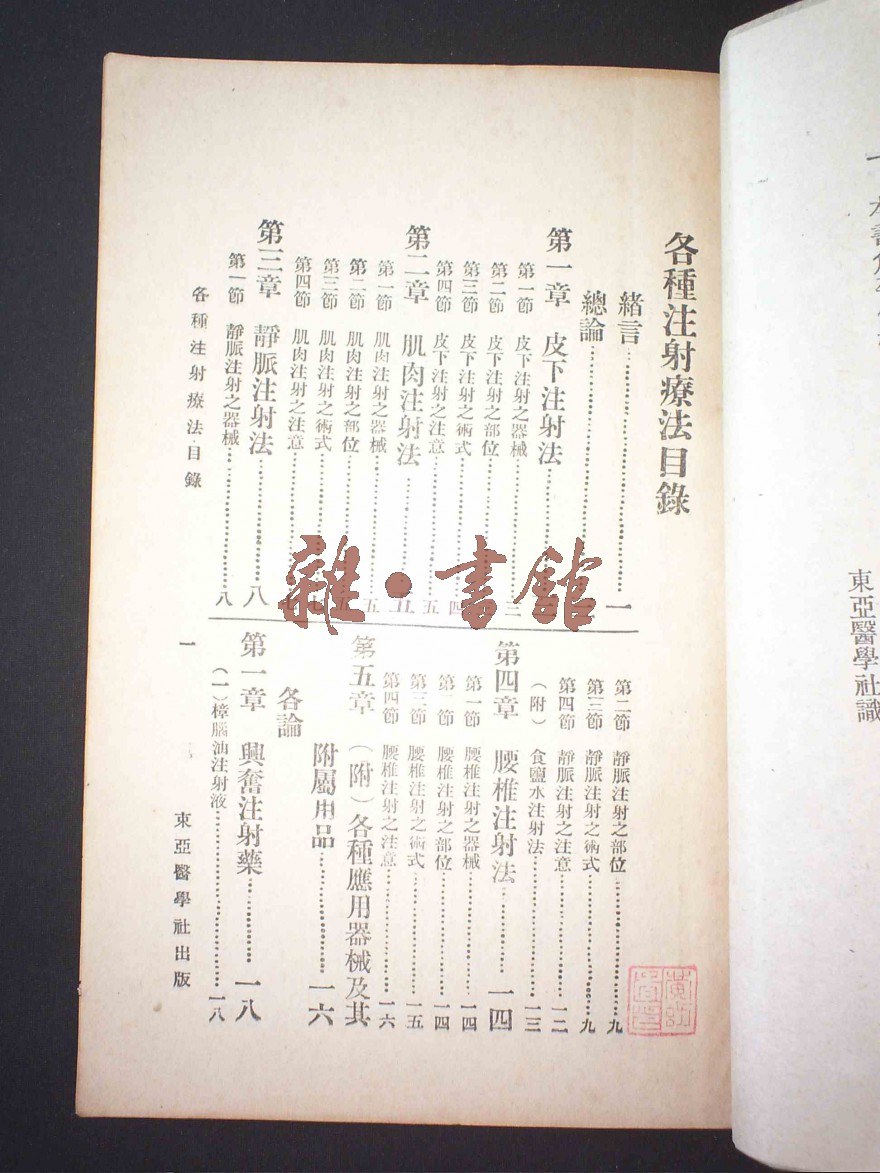 各種注射療法目錄
緒言……一
總論……
第一章 皮下注射法……
第一節 皮下注射之器械……三
第二節 皮下注射之部位……
第三節 皮下注射之術式……四
第四節 皮下注射之注意……五
第二章 肌肉注射法……五
第一節 肌肉注射之器械……五
第二節 肌肉注射之部位……五
第三節 肌肉注射之術式……七
第四節 肌肉注射之注意……七
第三章 靜脈注射法……八
第一節 靜脈注射之器械……八
第二節 靜脈注射之部位……九
第三節 靜脈注射之術式……九
第四節 靜脈注射之注意……一二
(附)食鹽水注射法……一三
第四章 腰椎注射法……一四
第一節 腰椎注射之器械……一四
第二節 腰椎注射之部位……一四
第三節 腰椎注射之術式……一五
第四節 腰椎注射之注意……一六
第五章 (附)各種應用器械及其
附屬用品……一六
各論
第一章 興奮注射藥……一八
(一)樟腦油注射液……一八
各種注射療法·目錄
一
東亞醫學社出版
東亞醫學社識
雜·書館